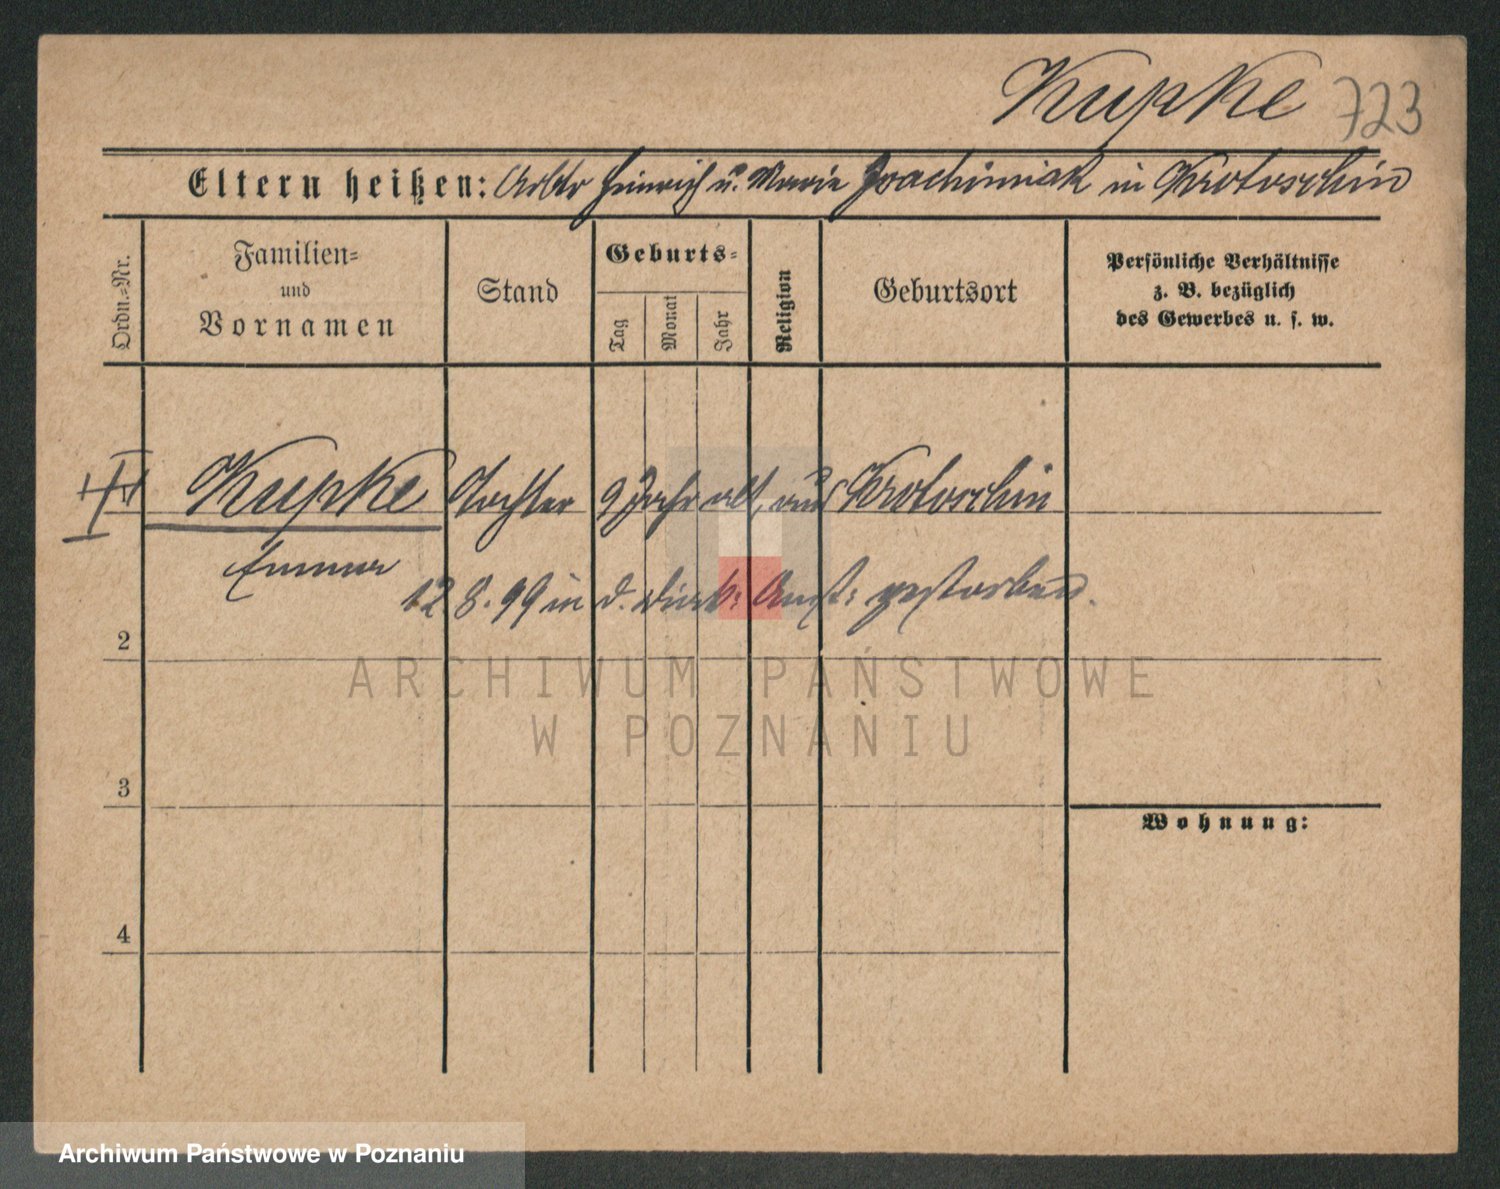 Kupke 723
Eltern heißen: Arbtr Heinrich u. Marie Joachimiak in Krotoschin
Ordn.-Nr.
Familien-
und
Vornamen
Stand
Geburts-
Tag
Monat
Jahr
Religion
Geburtsort
Persönliche Verhältnisse
z. B. bezüglich
des Gewerbes u. s. w.
Kupke Tochter 9 Jahr alt, aus Krotoschin
Emma
12 8. 99 in d. Diak: Anst: gestorben.
2
ARCHIWUM PAŃSTWOWE
W POZNANIU
3
Wohnung:
4
Archiwum Państwowe w Poznaniu